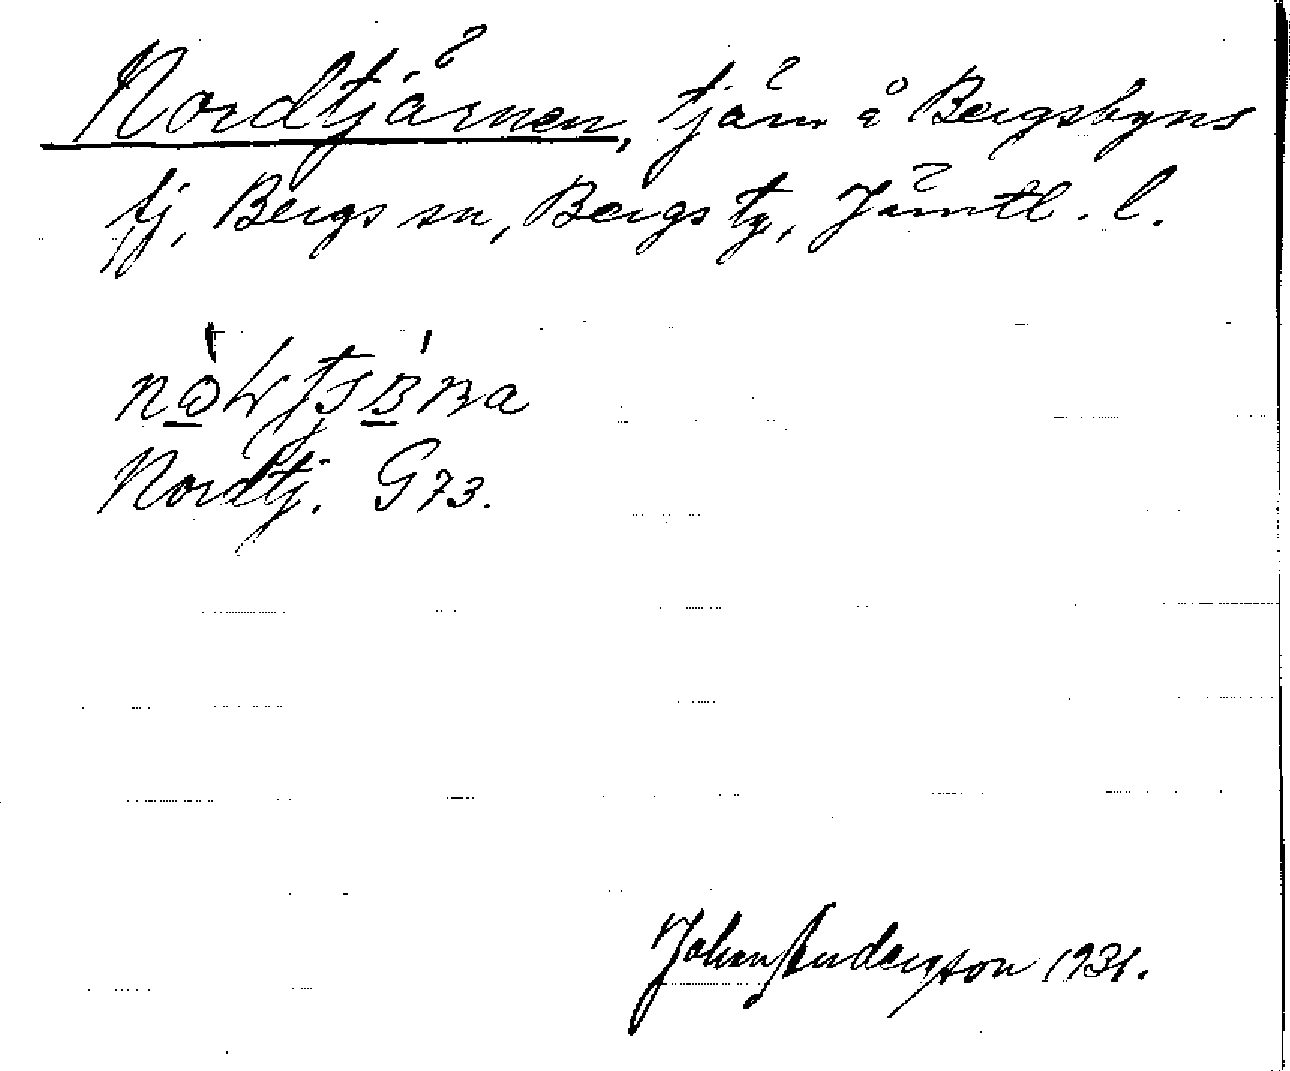 Nordtjärnen, tjärn å Bergsbyns
fj, Bergs sn, Bergs tg, Jämtl. l.
Nordtj. G73.
Johan Anderzson 1931.